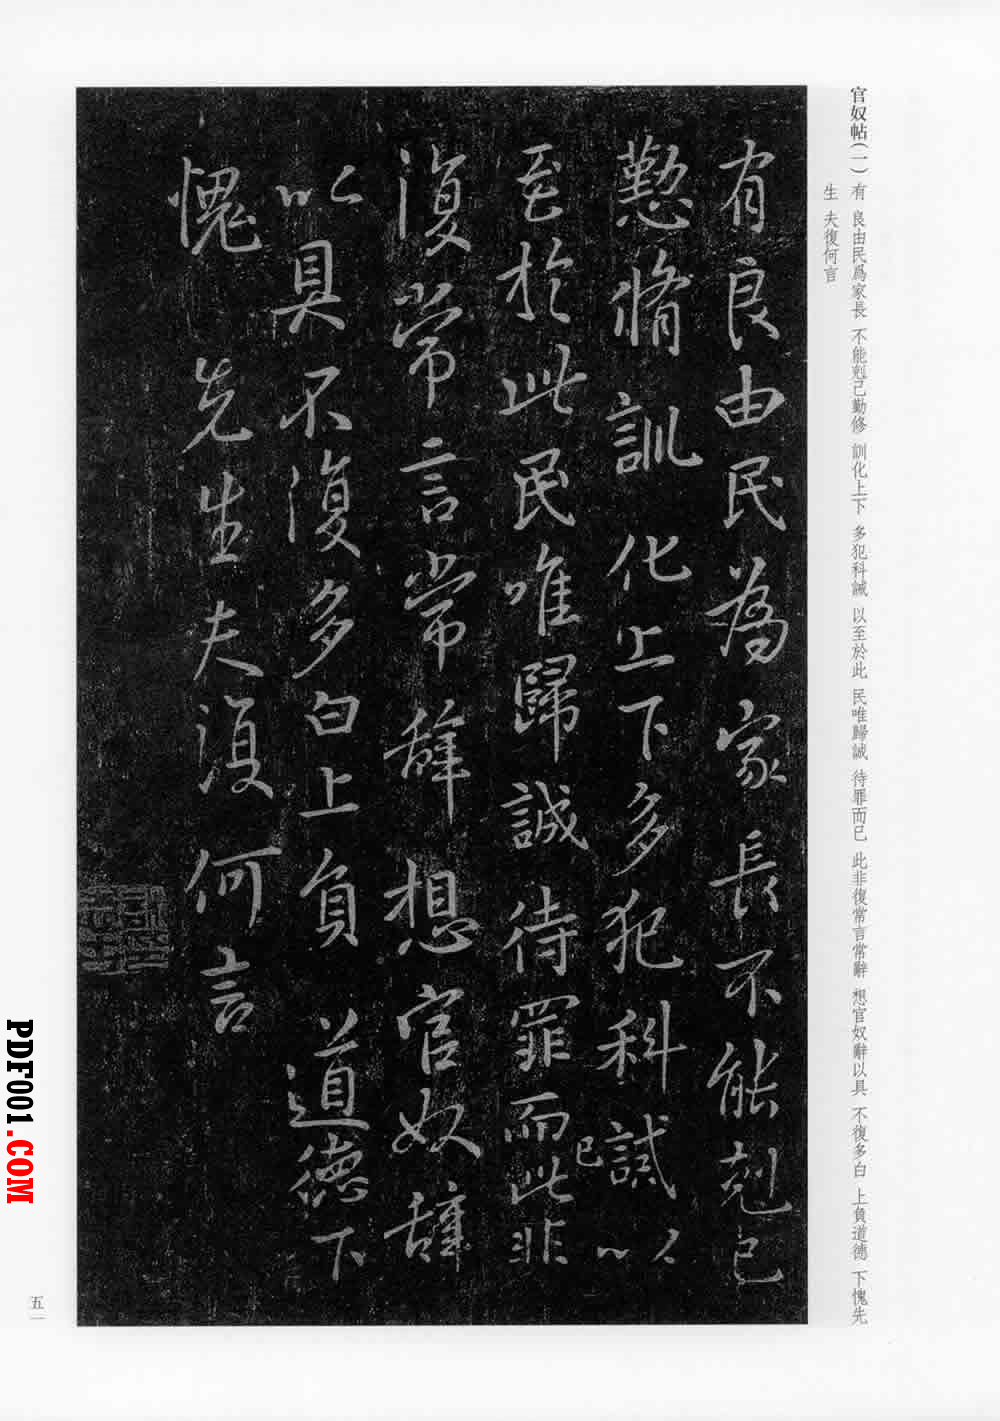 官奴帖(一) 有 良由民爲家長 不能剋己勤修 訓化上下 多犯科誡 以至於此 民唯歸誠 待罪而已 此非復常言常辭 想官奴辭以具 不復多白 上負道德 下愧先
生 夫復何言
有良由民為家長不能剋己
懃脩訓化上下多犯科誡以
至於此民唯歸誠待罪而已此非
復常言常辭想官奴辭
以具不復多白上負道德下
愧先生夫復何言
PDF001.COM
五一